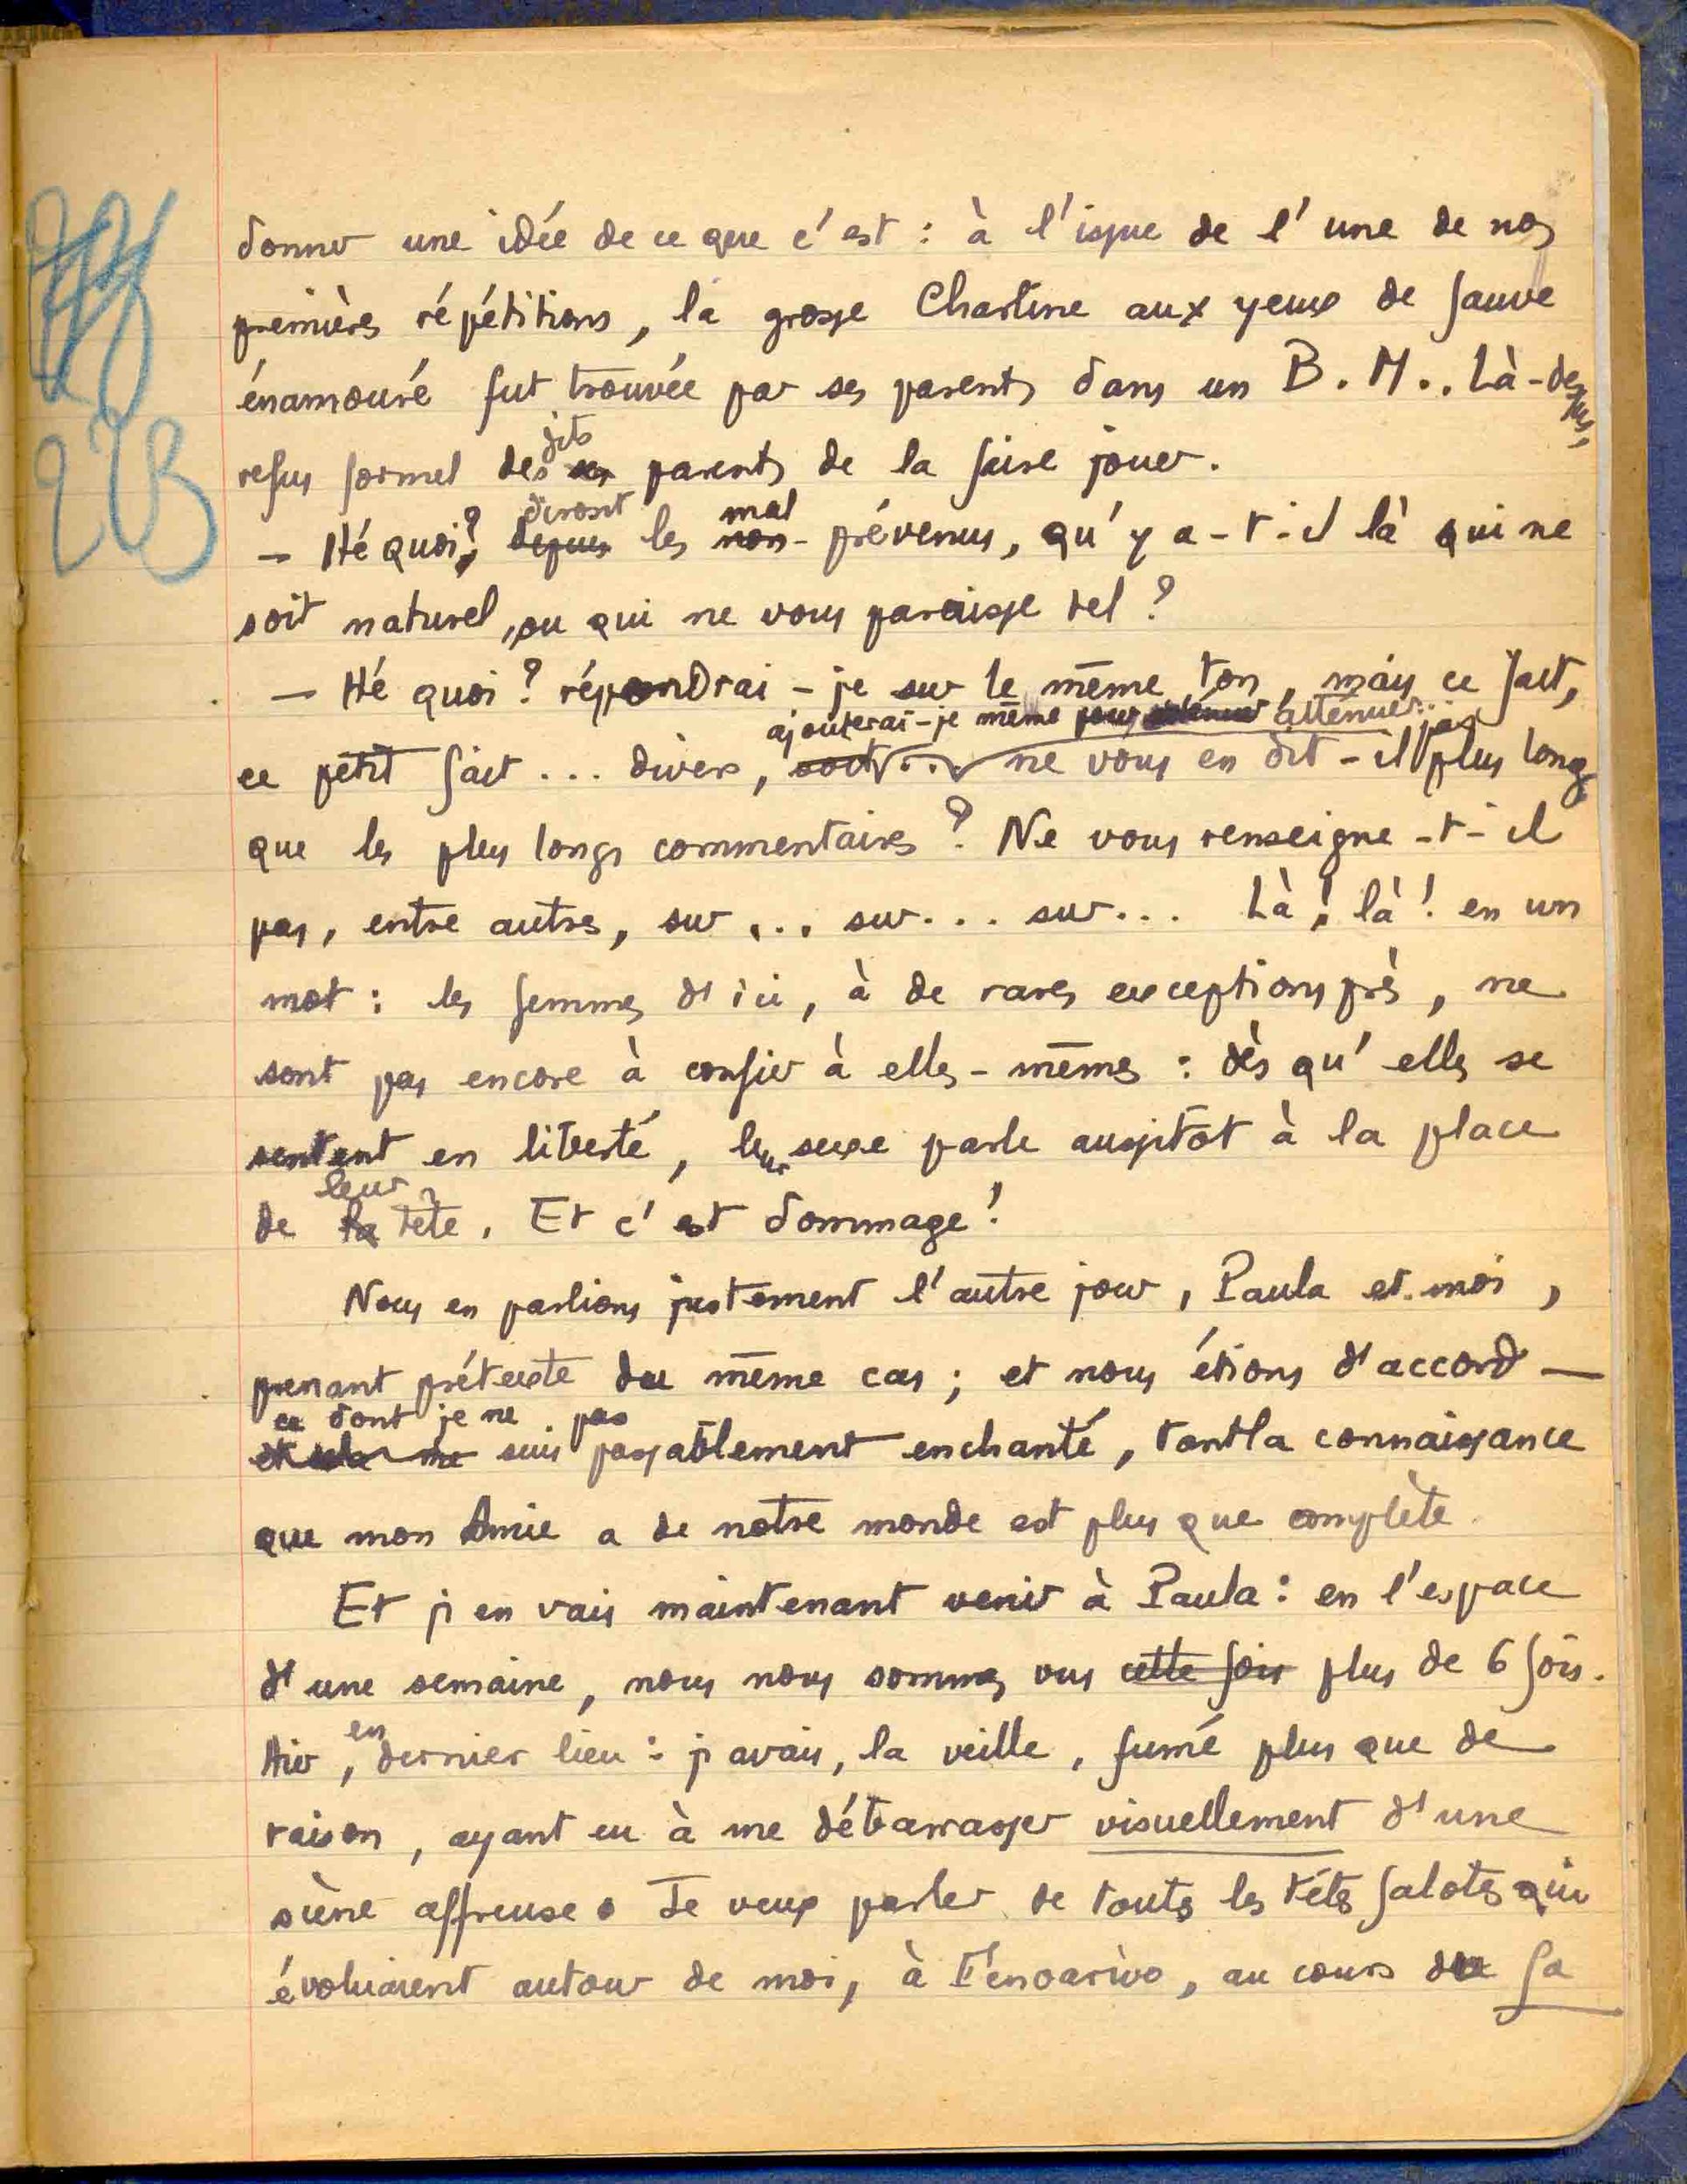 223
donner une idée de ce que c'est : à l'issue de l'une de nos
premières répétitions, la grosse Charline aux yeux de fauve
énamouré fut trouvée par ses parents dans un B. M.. Là-dessus,
refus formel des dits parents de la faire jouer.
— Hé quoi ? diront les mal prévenus, qu'y a-t-il là qui ne
soit naturel, ou qui ne vous paraisse tel ?
— Hé quoi ? répondrai-je sur le même ton, mais ce fait,
ajouterai-je même pour atténuer...
ce petit fait... divers, soit... ne vous en dit-il pas plus long
que les plus longs commentaires ? Ne vous renseigne-t-il
pas, entre autres, sur... sur... sur... Là ! là ! en un
mot : les femmes d'ici, à de rares exceptions près, ne
sont pas encore à confier à elles-mêmes : dès qu'elles se
sentent en liberté, leur sexe parle aussitôt à la place
de leur tête. Et c'est dommage !
Nous en parlions justement l'autre jour, Paula et moi,
prenant prétexte du même cas ; et nous étions d'accord —
ce dont je ne suis pas passablement enchanté, tant la connaissance
que mon Amie a de notre monde est plus que complète.
Et j'en vais maintenant venir à Paula : en l'espace
d'une semaine, nous nous sommes vus cette fois plus de 6 fois.
Hier, en dernier lieu : j'avais, la veille, fumé plus que de
raison, ayant eu à me débarrasser visuellement d'une
scène affreuse. Je veux parler de toutes les têtes falotes qui
évoluaient autour de moi, à Fenoarivo, au cours du fa